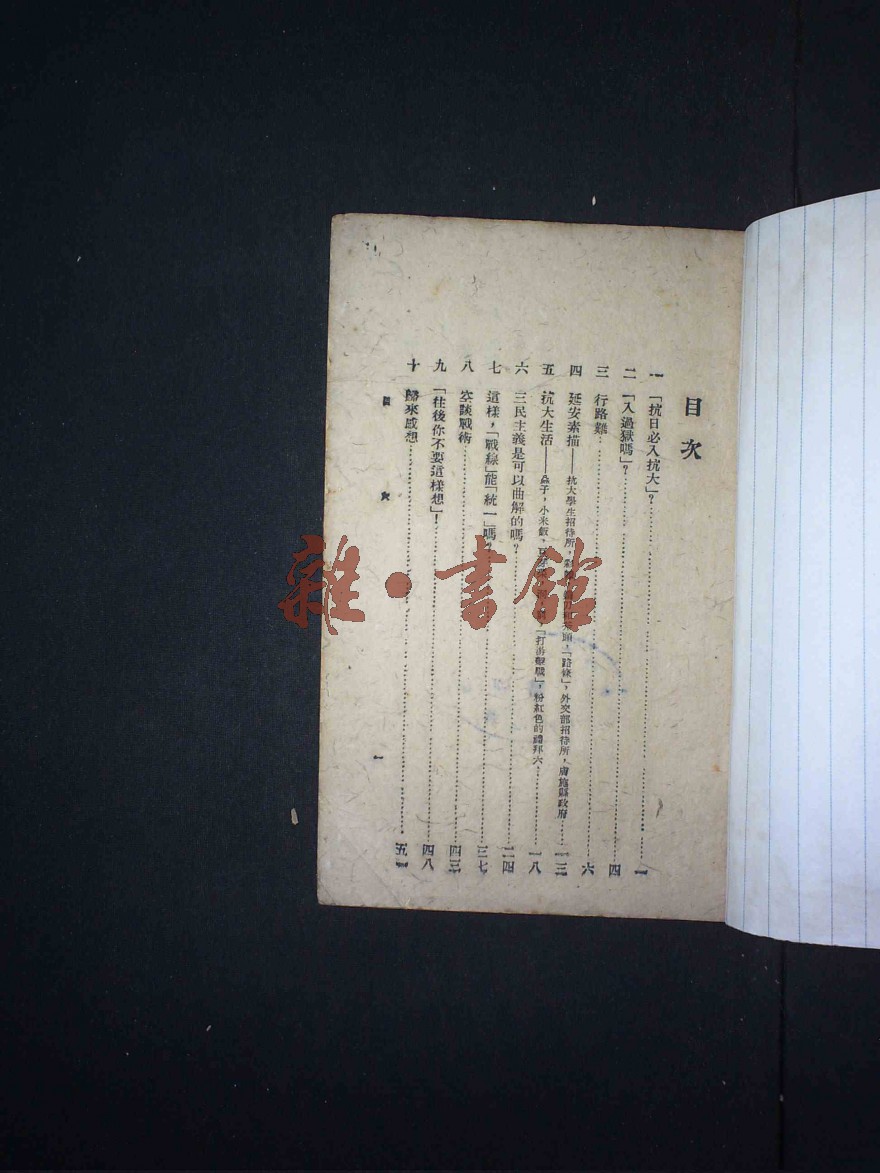 目次
一 「抗日必入抗大」？ 一
二 「入過獄嗎」？ 四
三 行路難 六
四 延安素描——抗大學生招待所，頭，「路條」，外交部招待所，膚施縣政府 一三
五 抗大生活——蝨子，小米飯，「打游擊戰」，粉紅色的禮拜六 一八
六 三民主義是可以曲解的嗎？ 二四
七 這樣，「戰線」能「統一」嗎？ 三七
八 空談戰術 四三
九 「往後你不要這樣想」！ 四八
十 歸來感想 五一
目 次
一
雜·書館